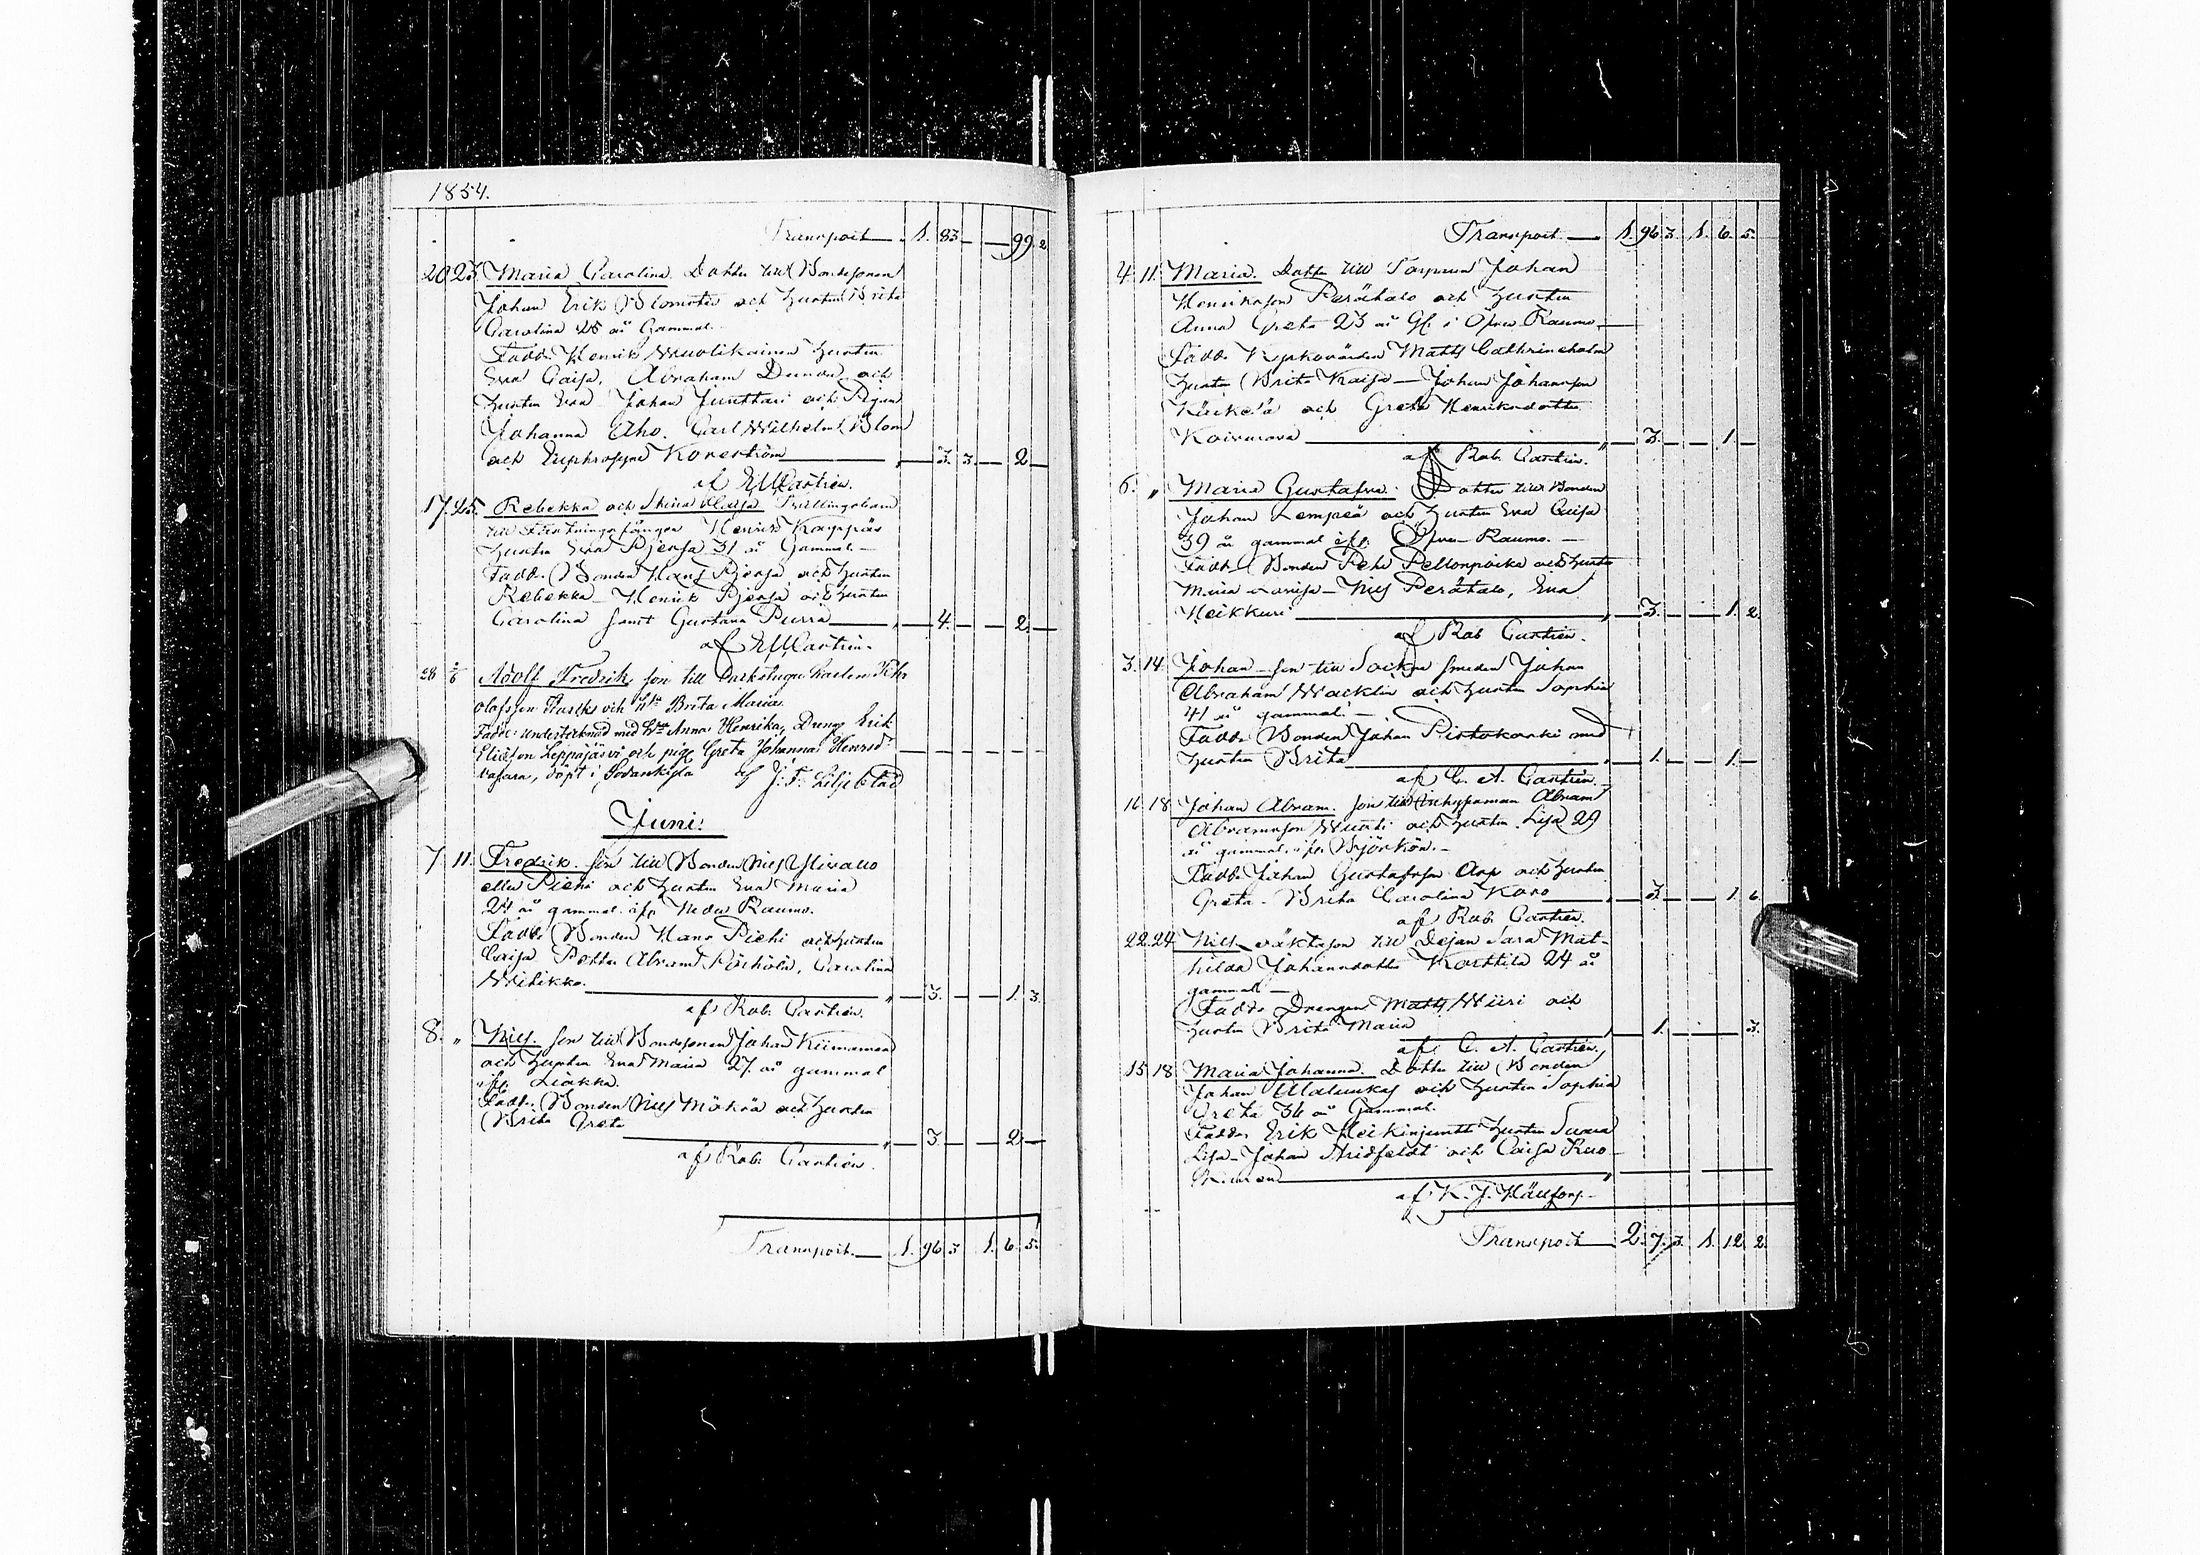 1854.
Transport 1. 83 — — 99. 2
20 23. Maria Carolina. Dotter till Bondesonen
Johan Erik Blomster och hustru Brita
Carolina 25 år Gammal.
Fadd: Henrik Muotikainen hustru
Eva Caisa, Abraham och
hustru Eva Johan Junttari och Pigan
Johanna Aho. Carl Wilhelm Blom
och Euphrosyne — 3. 3. — 2 —
af Castrén.
17. 25. Rebekka och Stina Caisa Trillingebarn
till Henrik
hustru Eva 31 år Gammal. —
Fadd: Bonden Hans och hustru
Rebekka — Henrik och hustru
Carolina samt Gustava Purra — 4. — — 2. —
af Castrén.
28 2/6 Adolf Fredrik, son till
Olofsson och Brita Maria.
Fadd: undertecknad med Anna Henrika, Dreng Erik
Eliasson Leppäjärvi och pige Greta Johanna Henrsd:
döpt i Sodankylä af J. F. Liljeblad
Juni.
7 11. Fredrik. son till Bonden Nils Ylivallo
eller Piehi och hustru Eva Maria
24 år gammal ifr. Neder Raumo.
Fadd: Bonden Hans Piehi och hustru
Caisa Petter Abram Carolina
— 3. — — 1. 3.
af Rob. Castrén.
8. „ Nils. son till Bondesonen Johan Kiimamaa
och hustru Eva Maria 27 år gammal
ifr. Liakka.
Fadd: Bonden Nils och hustru
Brita Greta
— 3 — — 2. —
af Rob. Castrén.
Transport — 1. 96 3 1. 6. 5.
Transport — 1. 96. 3. 1. 6. 5.
4. 11. Maria. Dotter till Torparen Johan
Henriksson Perätalo och hustru
Anna Greta 23 år Gl. i Öfver Raumo.
Fadd: Kyrkovärden Matts Cathrineholm
hustru Brita Kaisa — Johan Johansson
och Greta Henriksdotter
Koivurova — 3. — — 1. —
af Rob. Castrén.
6. „ Maria Gustafva. Dotter till Bonden
Johan Lempeä och hustru Eva Caisa
39 år gammal ifr. Öfver Raumo. —
Fadd: Bonden Pehr Pellonpoika och hustru
Maria Lovisa — Nils Perätalo, Eva
Heikkuri — 3. — — 1. 2.
af Rob Castrén.
3. 14. Johan — son till Socken smeden Johan
Abraham Wacklin och hustru Sophia
41 år gammal. —
Fadd: Bonden Johan Pistokoski med
hustru Brita — 1. — — 1. —
af C. A. Castrén.
16. 18. Johan Abram. son till Inhysman Abram
Abramsson och hustru Lisa 29
år gammal ifr. Björkön. —
Fadd: Johan Gustafsson och hustru
Greta. Brita Carolina — 3. — — 1. 6.
af Rob. Castrén.
22. 24. Nils. oäkta son till Dejan Sara Mat-
hilda Johansdotter Korttila 24 år
gammal —
Fadd: Drengen Matts Niiri och
hustru Brita Maria — 1. — — — 3.
af C. A. Castrén.
15 18. Maria Johanna. Dotter till Bonden
Johan Alaluukas och hustru Sophia
Greta 36 år Gammal.
Fadd: Erik Heikinjuntti hustru
Lisa — Johan och Caisa Ruo-
af K. J. Hällfors.
Transport 2. 7. 3. 1. 12. 2.